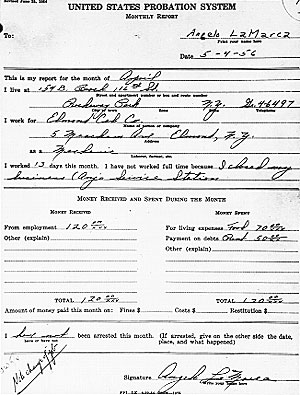 Revised June 24, 1954
UNITED STATES PROBATION SYSTEM
MONTHLY REPORT
To: Angelo LaMarca
Print your name here
Date 5-4-56
This is my report for the month of April
I live at 154 B. 112th St
Street and apartment number or box and route number
Rockway Park N.Y.
City or town State Telephone
I work for Elmont Cab Co
Name of person or company
5 Ave Elmont, N.Y.
Address
as a Mechanic
Laborer, farmer, etc.
I worked 13 days this month. I have not worked full time because I closed my
business (Ang's Service Station)
MONEY RECEIVED AND SPENT DURING THE MONTH
MONEY RECEIVED MONEY SPENT
From employment 120 For living expenses Food 70
Other (explain) Payment on debts Rent 50
Other (explain)
TOTAL 120 TOTAL 120
Amount of money paid this month on: Fines $ Costs $ Restitution $
I have not been arrested this month. (If arrested, give on the other side the date,
have or have not place, and what happened)
Signature Angelo LaMarca
Sign your name here